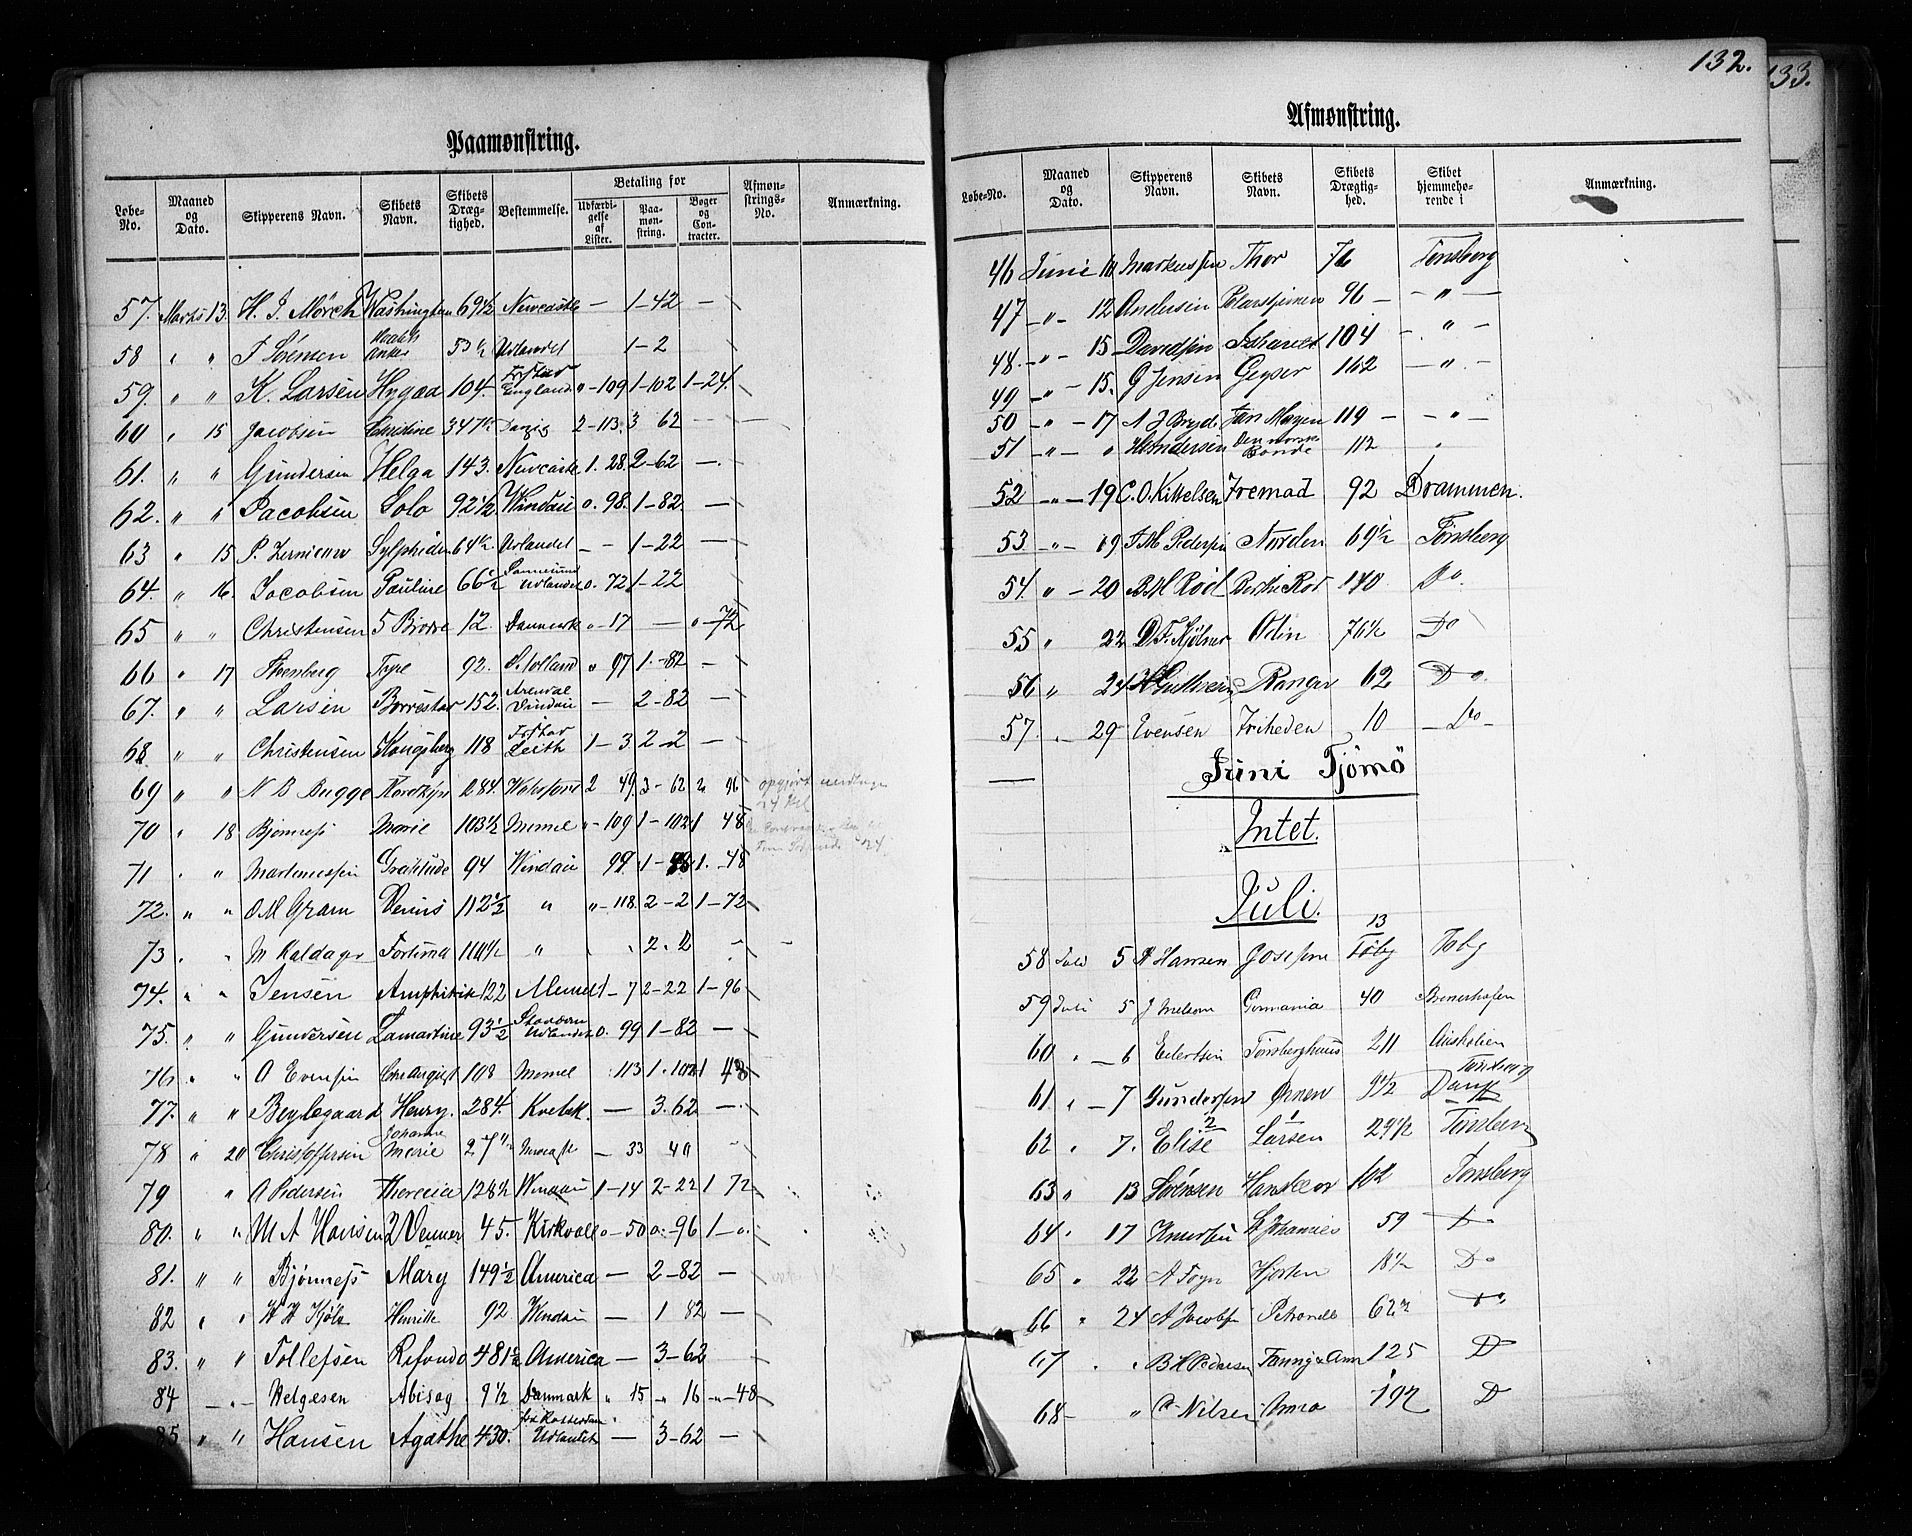 Paamønstring.
Løbe-No. Maaned og Dato. Skipperens Navn. Skibets Navn. Skibets Dræg-tighed. Bestemmelse. Betaling for Udfærdi-gelse af Lister. Paa-møn-string. Bøger og Con-tracter. Afmøn-strings-No. Anmærkning.
57. Marts 13. H. J. Mørch Washington 69 1/2 Newcastle — 1-42 —
58 " " F Sörensen Anker 53 1/2 Udlandet 1-2
59. " " K. Larsen Hygæa 104. England " -109 1-102 1-24.
60 " 15 Jacobsen Christine 347 1/2 Danzig 2-113. 3 62 —
61. " " Gundersen Helga 143. Newcastle 1. 28. 2-62 —.
62. " " Jacobsen Solo 92 1/2 Windau 0. 98. 1-82. —
63 " 15 P. Sylphiden 64 1/2 Udlandet - - 1-22 —
64. " 16. Jacobsen Pauline 66 1/2 Udlandet 0. 72 1-22
65 " " Christensen 5 Brödre 12. Danmark " -17 — " -72
66 " 17 Stensberg Type 92. Holland " 97 1.-82 —
67. " " Larsen Borrestad 152. Arendal Vindau — 2-82 —
68. " " Christensen Kongsberg 118 Leith 1-3 2-2 —
69 " " N B Bugge Nordkyn 284. 2 49. 3-62 2 96 opgjort
70 " 18 Bjönness Marie 103 1/2 Memel " -109 1-102 1 48
71 " " Martinussen Gratitude 94 Windau 99 1- 1.-48
72. " " O M Gram Venus 112 1/2 " " -118. 2-2 1-72
73 " " M Kaldager Fortuna 114 1/2 " " 2.2 -
74. " " Jensen Amphitrite 122 Memel 1-7 2-22 1-96
75. " " Gundersen Lamartine 93 1/2 Udlandet 0. 99 1-82 —
76 " " A Evensen Chr August 108 Memel 113 1.102 1 48
77. " " Beylegaard Henry. 284. Kvebek. — 3.62 —.
78 " 20 Christoffersen Johanne Marie 27 1/2 Newcastle — 33 40 -
79 " A Pedersen Theresia 128 1/2 Windau 1-14 2-22 1 72
80. " " M A Hansen 2 Venner 45. Kirkvall 0-50 0.-96 1-0.
81. " " Bjönness Mary 149 1/2 America — 2-82 —
82 " " W H Kjöls Henritte 92 Windau — 1 82 —
83. " " Tollefsen Refondo 481 1/2 America — 3-62
84 — " — Helgesen Abisag 9 1/2 Danmark " 15 " 16 " -48
85 " " Hansen Agathe 430. for Rotterdam Udlandet — 3-62 —
132.
133.
Afmønstring.
Løbe-No. Maaned og Dato. Skipperens Navn. Skibets Navn. Skibets Drægtig-hed. Skibet hjemmehø-rende i Anmærkning.
46 Juni 10 Markussen Thor 76 Tonsberg
47 — " — 12 Andersen Polarstjernen 96 — — " —
48. — " — 15 Davidsen 104 — " —
49 — " — 15. G Jensen Geyser 162 — " —
50 — " — 17 A J Bryde Jan Mayen 119 — — " —
51 — " — " H Andersen Den norske Bonde 112 "
52 — " — 19 C. O. Kittelsen Fremad 92 Drammen.
53 — " — 19 F M Pedersen Norden 69 1/2 Tönsberg
54. " — 20 B M Röd Röd 140 Do.
55 " 22 D. F. Kjölner Odin 76 1/2 Do
56 " 24 Ranger 62 Do.
57. . 29 Evensen Friheden 10 — Do —
— Juni Tjömö
Intet.
Juli.
58 Juli 5 H Hansen Josefine 13 Töbg Tobg
59 Juli 5 J Melsom Germania 40 Bremerhafen
60 " — 6 Eilertsen Tönsberghuus 211 Tönsberg
61 " — 7 Gundersen Ørnen 9 1/2 Do
62 " 7. Elise 2 Larsen 1 29 1/2 Tönsberg
63 " 13 Sørensen Hans Leor 102 Tonsberg
64 " 17 Knudsen St Johannes 59 Do
65 " 22 A Fogn Hjorten 18 1/2 Do
66 " 24 A Jacobsen Petronelle 62 1/2 Do
67 " " B H Pedersen Fanny & Ann 125 D
68 — " C Nilsen Anna 192 D